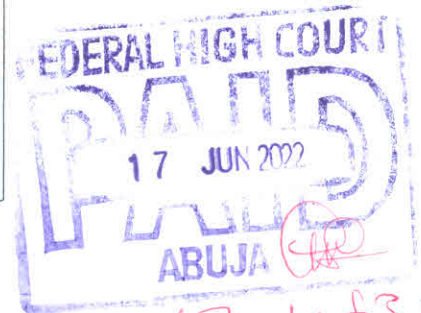 FEDERAL HIGH COURT
PAID
17 JUN 2022
ABUJA